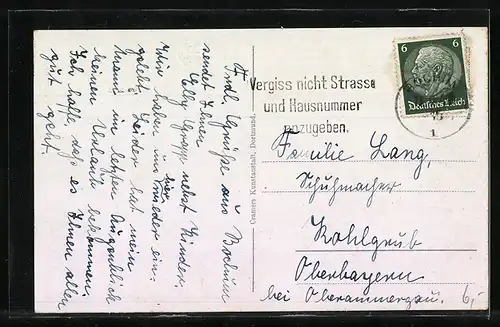 Frdl. Grüße aus Bochum
sendet Ihnen
Elly Grapp nebst Kinder.
Wir haben hier
in wieder ein.
gelebt. Leider hat mein
Mann im letzten Augenblick
keinen Urlaub bekommen.
Ich hoffe, daß es Ihnen allen
gut geht.
Cramers Kunstanstalt, Dortmund.
Vergiss nicht Strasse
und Hausnummer
anzugeben.
6 6
Deutsches Reich
1
Familie Lang,
Schuhmacher
Kohlgrub
Oberbayern
bei Oberammergau.
6,-